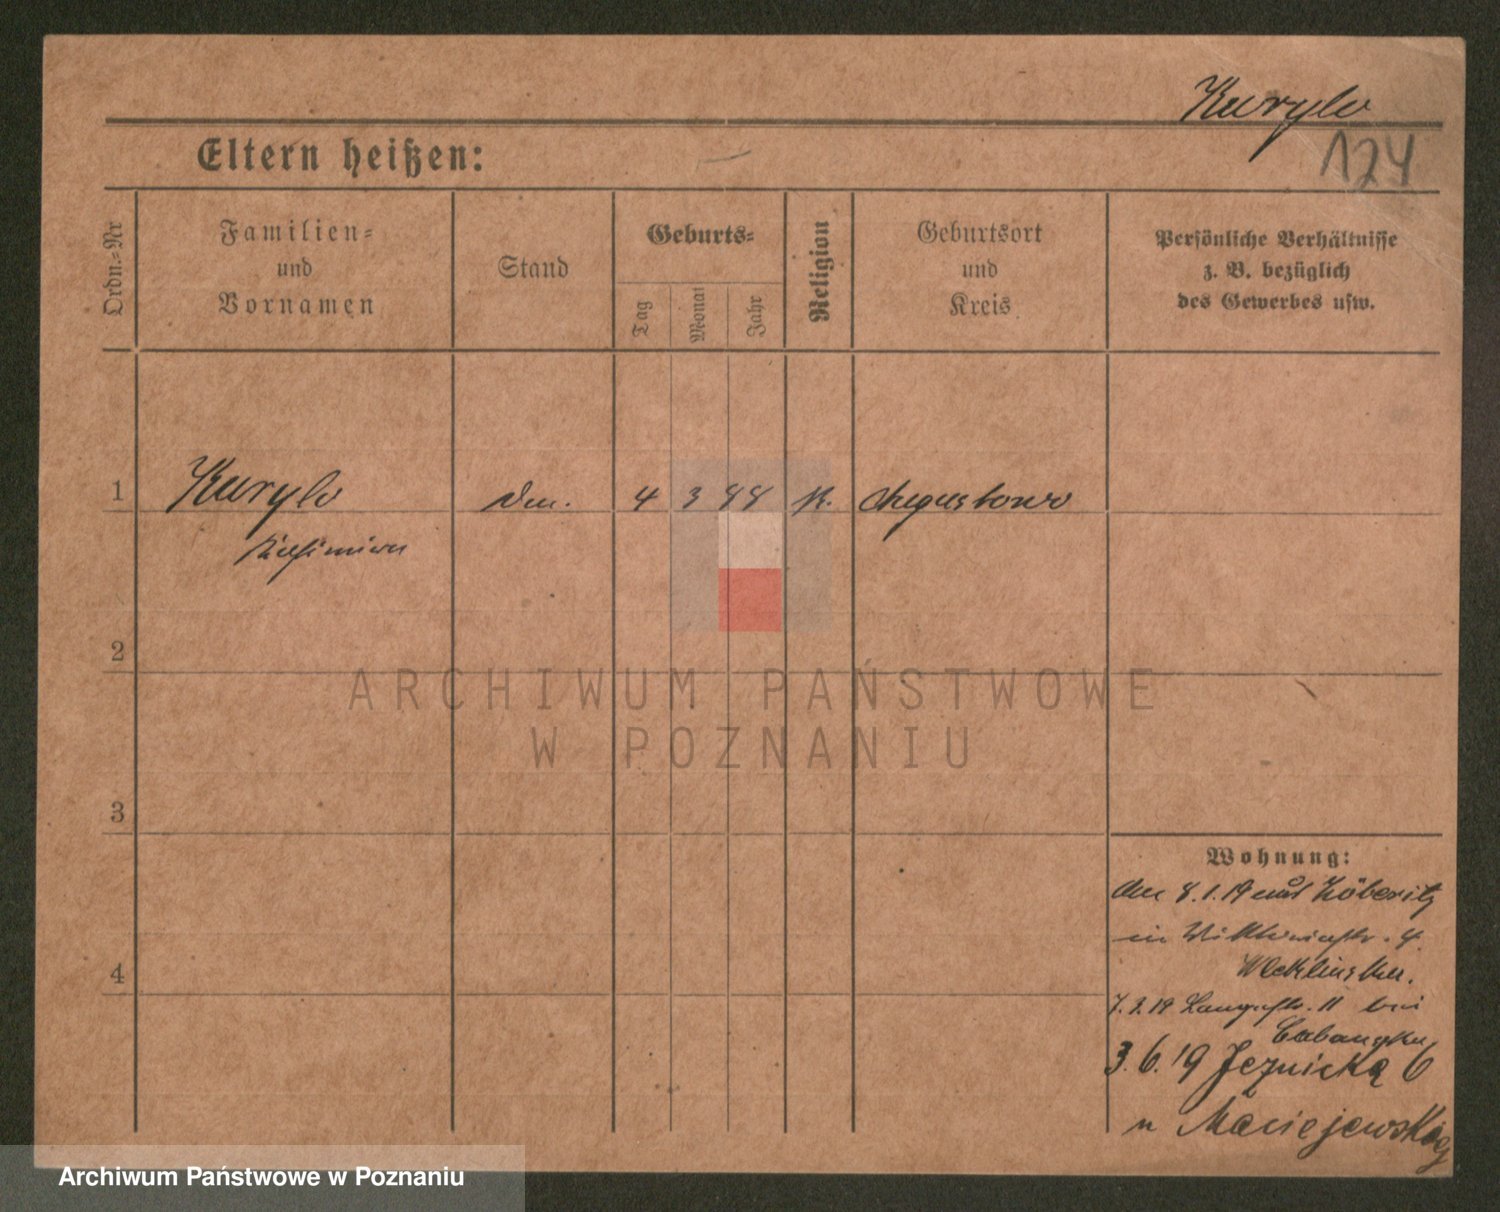 Kurylo
124
Eltern heißen: —
Ordn.-Nr
Familien-
und
Vornamen
Stand
Geburts-
Tag
Monat
Jahr
Religion
Geburtsort
und
Kreis
Persönliche Verhältnisse
z. B. bezüglich
des Gewerbes usw.
1 Kurylo 4 3 88 k. Augustowo
Kasimira
2
3
4
Wohnung:
8.1.19 aus
in Viktoriastr. 4
7.2.19 Langestr. 11 bei
3.6.19 Jeznicka 6
u Maciejewskiej
ARCHIWUM PAŃSTWOWE
W POZNANIU
Archiwum Państwowe w Poznaniu